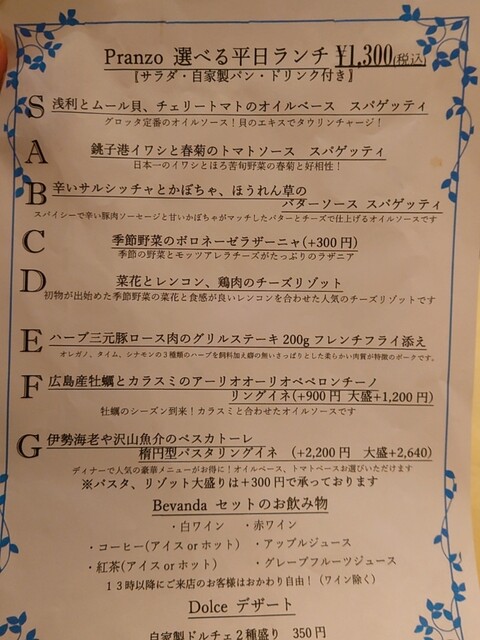 Pranzo 選べる平日ランチ ¥1,300(税込)
〚サラダ・自家製パン・ドリンク付き〛
S 浅利とムール貝、チェリートマトのオイルベース スパゲッティ
グロッタ定番のオイルソース！貝のエキスでタウリンチャージ！
A 銚子港イワシと春菊のトマトソース スパゲッティ
日本一のイワシとほろ苦旬野菜の春菊と好相性！
B 辛いサルシッチャとかぼちゃ、ほうれん草の
バターソース スパゲッティ
スパイシーで辛い豚肉ソーセージと甘いかぼちゃがマッチしたバターとチーズで仕上げるオイルソースです
C 季節野菜のボロネーゼラザーニャ(+300 円)
季節の野菜とモッツアレラチーズがたっぷりのラザニア
D 菜花とレンコン、鶏肉のチーズリゾット
初物が出始めた季節野菜の菜花と食感が良いレンコンを合わせた人気のチーズリゾットです
E ハーブ三元豚ロース肉のグリルステーキ 200g フレンチフライ添え
オレガノ、タイム、シナモンの３種類のハーブを飼料加え癖の無いさっぱりとした柔らかい肉質が特徴のポークです。
F 広島産牡蠣とカラスミのアーリオオーリオペペロンチーノ
リングイネ(+900 円 大盛+1,200 円)
牡蠣のシーズン到来！カラスミと合わせたオイルソースです
G 伊勢海老や沢山魚介のペスカトーレ
楕円型パスタリングイネ (+2,200 円 大盛+2,640)
ディナーで人気の豪華メニューがお得に！オイルベース、トマトベースお選びいただけます
※パスタ、リゾット大盛りは＋300 円で承っております
Bevanda セットのお飲み物
・白ワイン ・赤ワイン
・コーヒー(アイス or ホット) ・アップルジュース
・紅茶(アイス or ホット) ・グレープフルーツジュース
１３時以降にご来店のお客様はおかわり自由！(ワイン除く)
Dolce デザート
自家製ドルチェ２種盛り 350 円